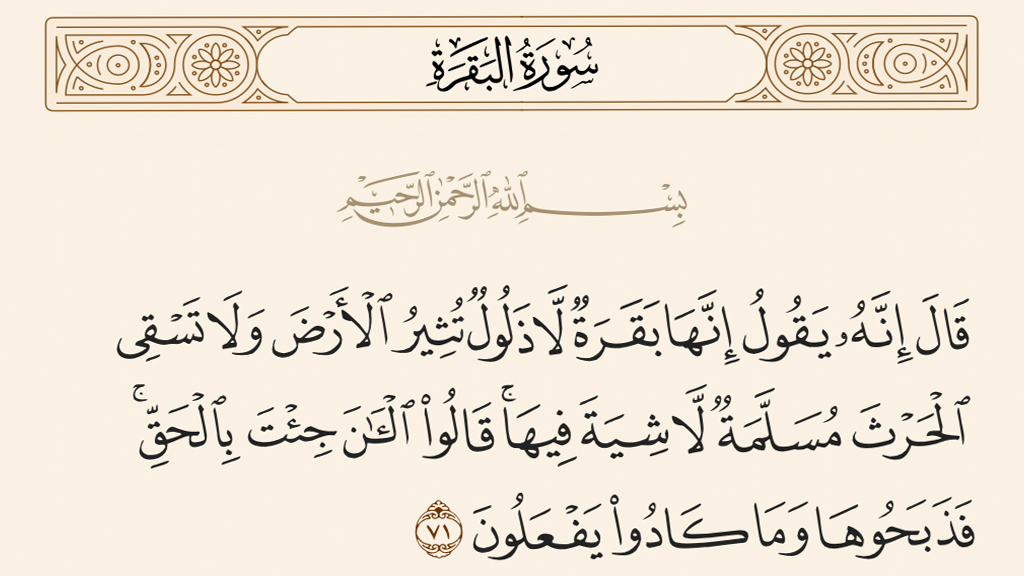 سُورَةُ البَقَرَةِ
بِسْمِ ٱللَّهِ ٱلرَّحْمَٰنِ ٱلرَّحِيمِ
قَالَ إِنَّهُۥ يَقُولُ إِنَّهَا بَقَرَةٌ لَّا ذَلُولٌ تُثِيرُ ٱلْأَرْضَ وَلَا تَسْقِى
ٱلْحَرْثَ مُسَلَّمَةٌ لَّا شِيَةَ فِيهَا ۚ قَالُوا۟ ٱلْـَٰٔنَ جِئْتَ بِٱلْحَقِّ ۚ
فَذَبَحُوهَا وَمَا كَادُوا۟ يَفْعَلُونَ ٧١